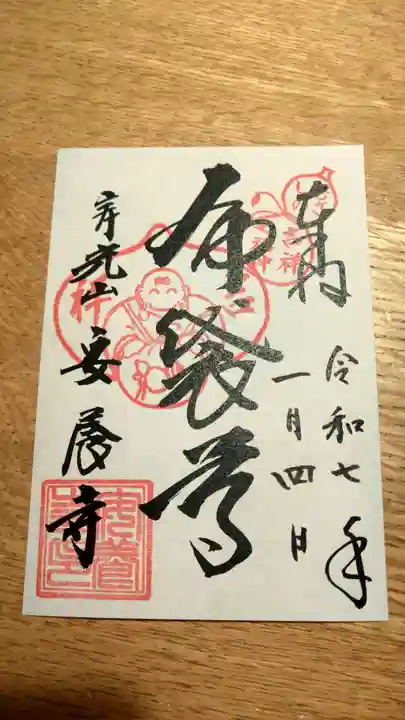 奉拝
令和七年
一月四日
布袋尊
安養寺